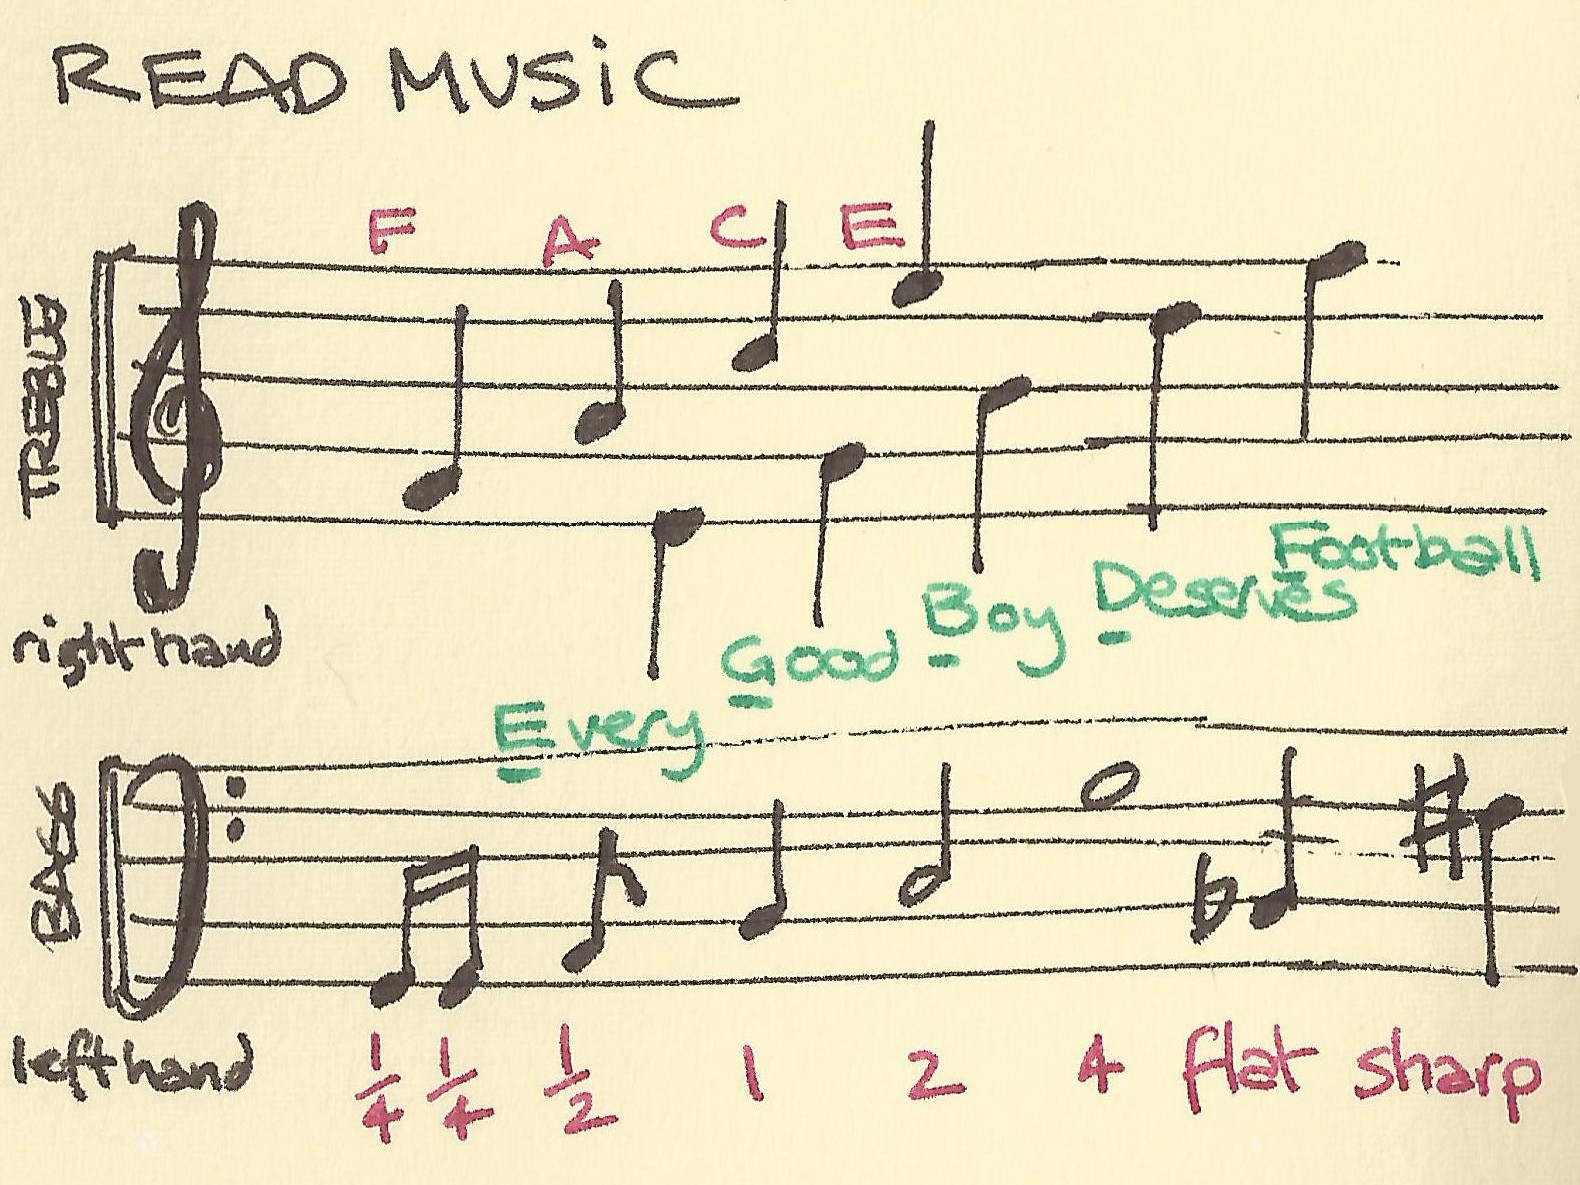 READ MUSiC
F A C E
TREBLE
right hand
Every Good Boy Deserves Football
BASS
left hand
1/4 1/4 1/2 1 2 4 flat sharp